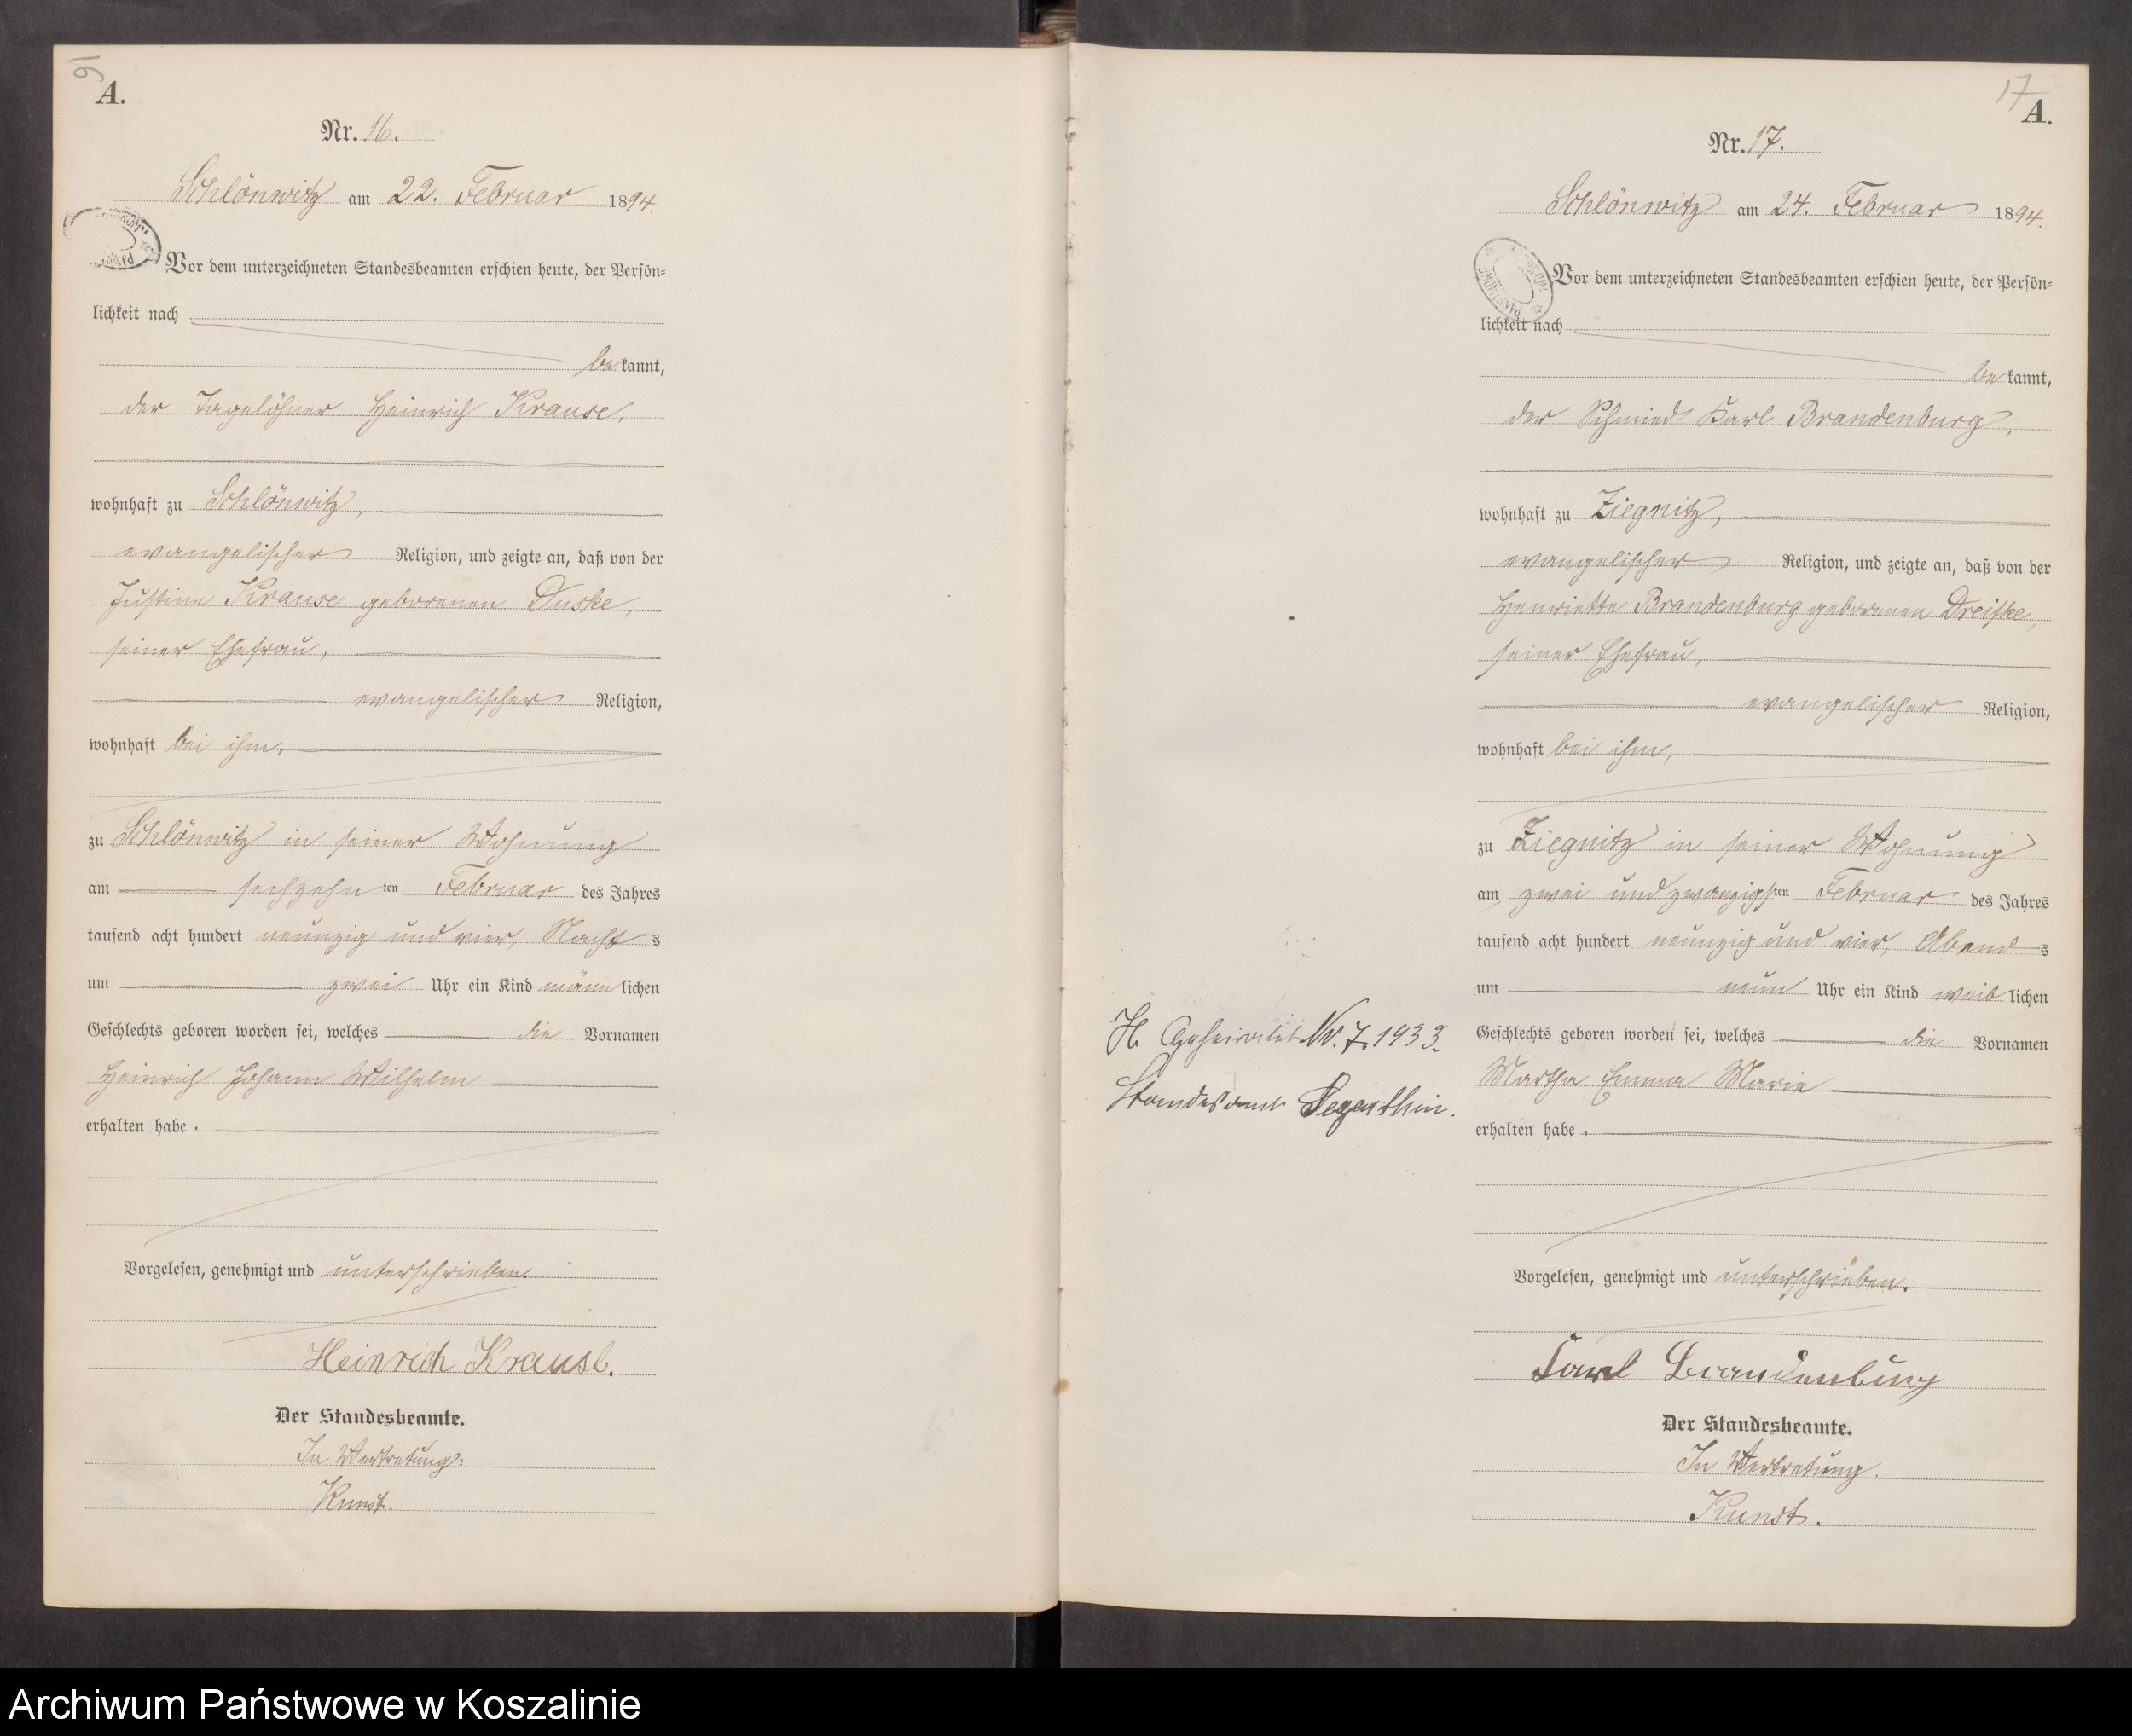 16
A.
Nr. 16.
Schlönwitz am 22. Februar 1894.
Vor dem unterzeichneten Standesbeamten erschien heute, der Persön-
lichkeit nach
bekannt,
der Tagelöhner Heinrich Krause,
wohnhaft zu Schlönwitz,
evangelischer Religion, und zeigte an, daß von der
Justine Krause geborenen Duske,
seiner Ehefrau,
evangelischer Religion,
wohnhaft bei ihm,
zu Schlönwitz in seiner Wohnung
am sechzehnten Februar des Jahres
tausend acht hundert neunzig und vier, Nachts
um zwei Uhr ein Kind männlichen
Geschlechts geboren worden sei, welches die Vornamen
Heinrich Johann Wilhelm
erhalten habe.
Vorgelesen, genehmigt und unterschrieben.
Heinrich Krause.
Der Standesbeamte.
In Vertretung:
Kunst.
17
A.
Nr. 17.
Schlönwitz am 24. Februar 1894.
Vor dem unterzeichneten Standesbeamten erschien heute, der Persön-
lichkeit nach
bekannt,
der Schmied Karl Brandenburg,
wohnhaft zu Ziegnitz,
evangelischer Religion, und zeigte an, daß von der
Henriette Brandenburg geborenen Dreiske,
seiner Ehefrau,
evangelischer Religion,
wohnhaft bei ihm,
zu Ziegnitz in seiner Wohnung
am zwei und zwanzigsten Februar des Jahres
tausend acht hundert neunzig und vier, Abends
um neun Uhr ein Kind weiblichen
Geschlechts geboren worden sei, welches die Vornamen
Martha Emma Marie
erhalten habe.
Vorgelesen, genehmigt und unterschrieben.
Carl Brandenburg
Der Standesbeamte.
In Vertretung.
Kunst.
Nr. 7. 1933.
Standesamt
Archiwum Państwowe w Koszalinie